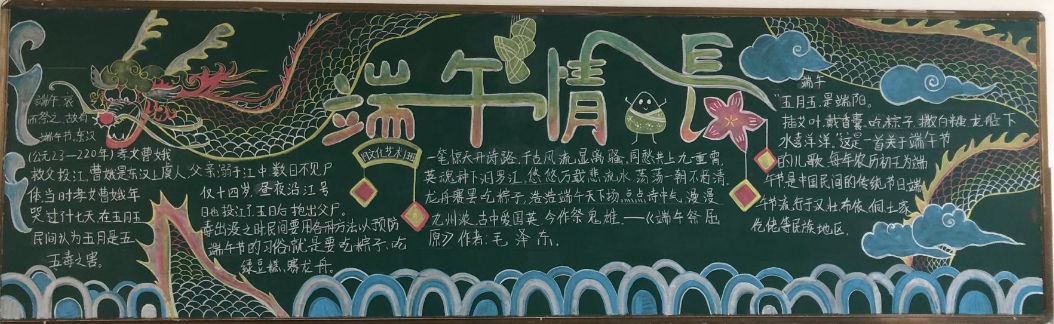 端午情长
端午、哀
而祭之,故有
端午节,东汉
(公元23—220年)孝女曹娥
救父投江,曹娥是东汉上虞人父亲溺于江中数日不见尸
体,当时孝女曹娥年仅十四岁,昼夜沿江号
哭过什七天,在五月五日也投江了五日后抱出父尸。
民间认为五月是五毒出没之时民间要用各种方法以预防
五毒之害。端午节的习俗就是要吃粽子、吃
绿豆糕,赛龙舟。
一笔惊天开诗路,千古风流显离骚。同愁共上九重霄,
英魂种下汨罗江,悠悠万载悲流水,荡荡一朝不若清,
龙舟赛罢吃粽子,浩浩端午天下扬,点点诗中乱,漫漫
九州浓,古中爱国英,今作祭鬼雄。——《端午祭屈
原》作者:毛泽东。
端午
"五月五,是端阳。
插艾叶,戴香囊,吃粽子,撒白糖,龙船下
水喜洋洋。"这是一首关于端午节
的儿歌,每年农历初五为端
午节是中国民间的传统节日端
午节流行于汉壮布依、侗土家
仡佬等民族地区。